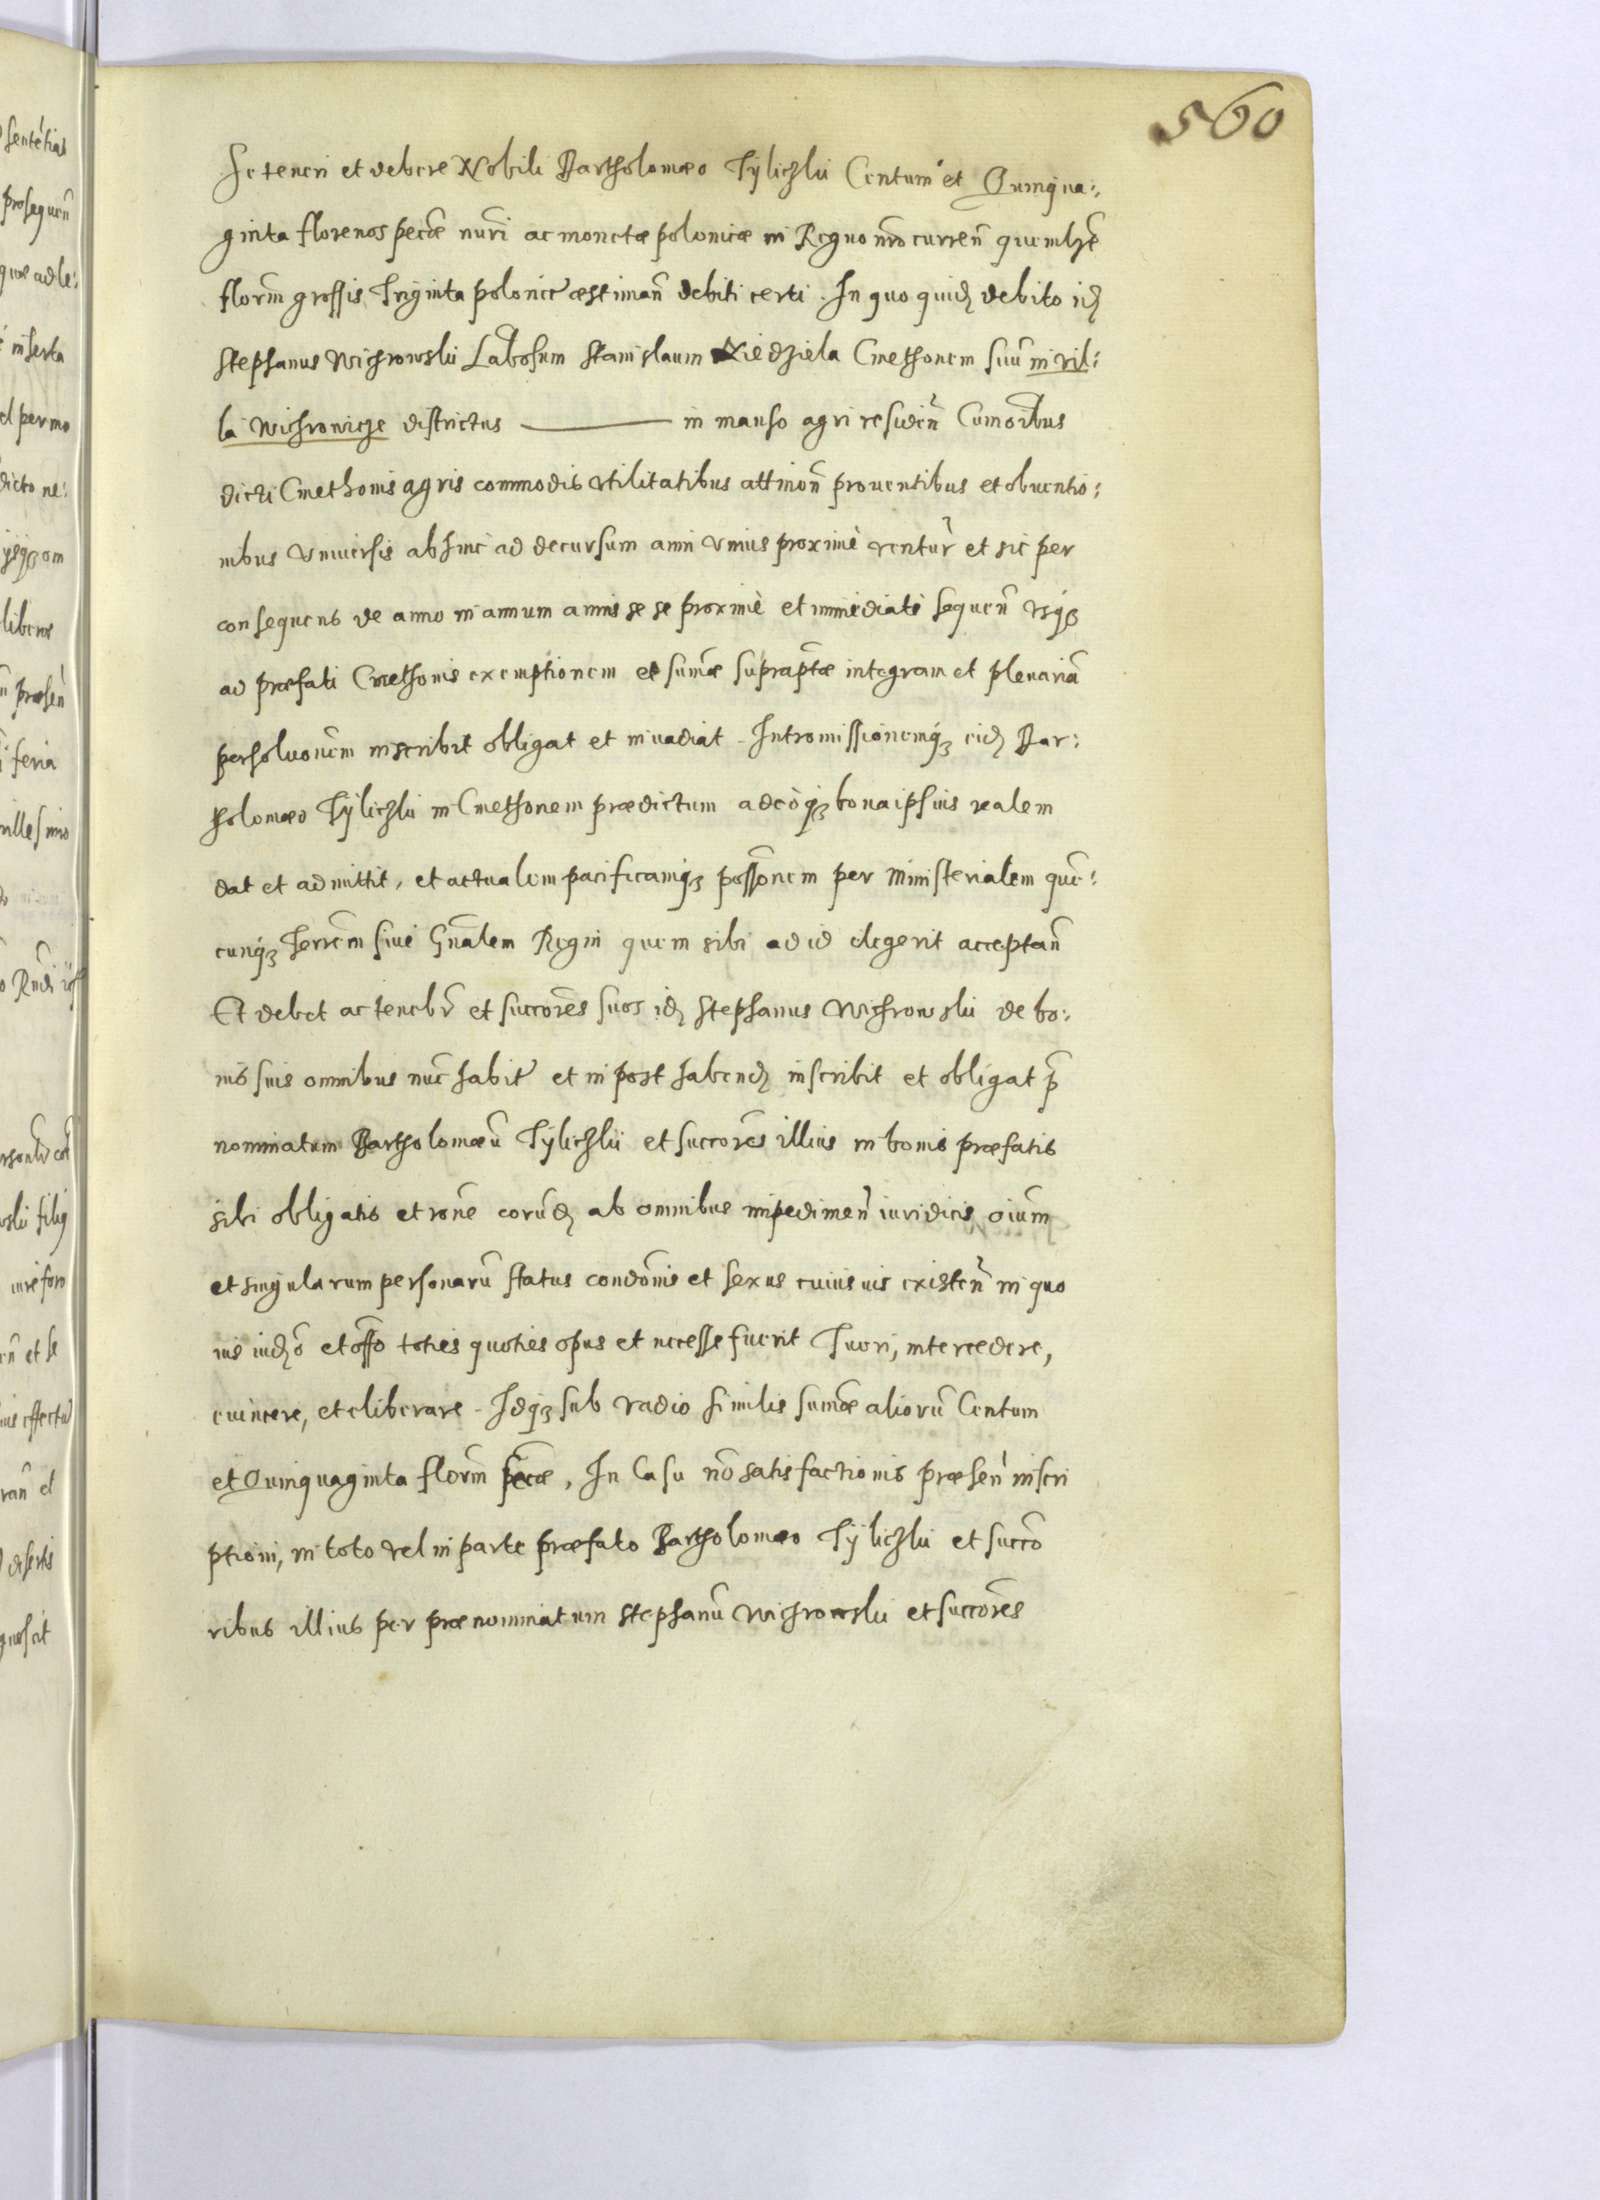 560
se teneri et debere Nobili Bartholomæo Tÿliczki Centum et Quinqua:
ginta florenos pecūæ num̄ri ac monetæ polonicæ in Regno nr̄o curren̄ quemlẓ̄e
floren̄m grossis Triginta polonic̄ æstiman̄ debiti certi. In quo quidẓ debito idẓ
Stephanus Wichrowski Labōsum Stanislaum Niedziela Cmethonem suū in vil:
la Wichrowicze districtus ——— in manso agri residēn Cum oībus
dicti Cmethonis agris commodis vtilitatibus attinēn prouentibus et obuentio:
nibus vniuersis ab hinc ad decursum anni vnius proximè ventur̄ et sic per
consequens de anno in annum annis se se proximè et immediatè sequen̄ vsqꝫ
ad præfati Cmethonis exemptionem et sum̄æ supraptæ integram et plenariā
persolvōnem inscribit obligat et inuadiat. Intromissionemqꝫ eidẓ Bar:
tholomæo Tÿliczki in Cmethonem prædictum adeòqꝫ bona ipsius realem
dat et admittit, et actualem pacificamqꝫ possōnem per Ministerialem quē:
cunqꝫ Terrēm siue Gn̄alem Regni quem sibi ad id elegerit acceptan̄
Et debet ac tenebr̄ et succōres suos idẓ Stephanus Wichrowski de bo:
nis suis omnibus nūc habit̄ et in post habendẓ inscribit et obligat p̄
nominatum Bartholomæū Tÿliczki et succōres illius in bonis præfatis
sibi obligatis et rōne eorūdẓ ab omnibus impedimen̄ iuridicis oīum
et singularum personarū status condōnis et sexus cuiusuis existen̄ in quo
uis iudẓō et offō toties quoties opus et necesse fuerit Tueri, intercedere,
euincere, et eliberare. Idqꝫ sub vadio similis sum̄æ aliorū Centum
et Quinquaginta florēn pecūæ, In Casu nō satisfactionis præsen̄ inscri
ptioni, in toto vel in parte præfato Bartholomæo Tÿliczki et succō
ribus illius per prænominatum Stephanū Wichrowski et succōres